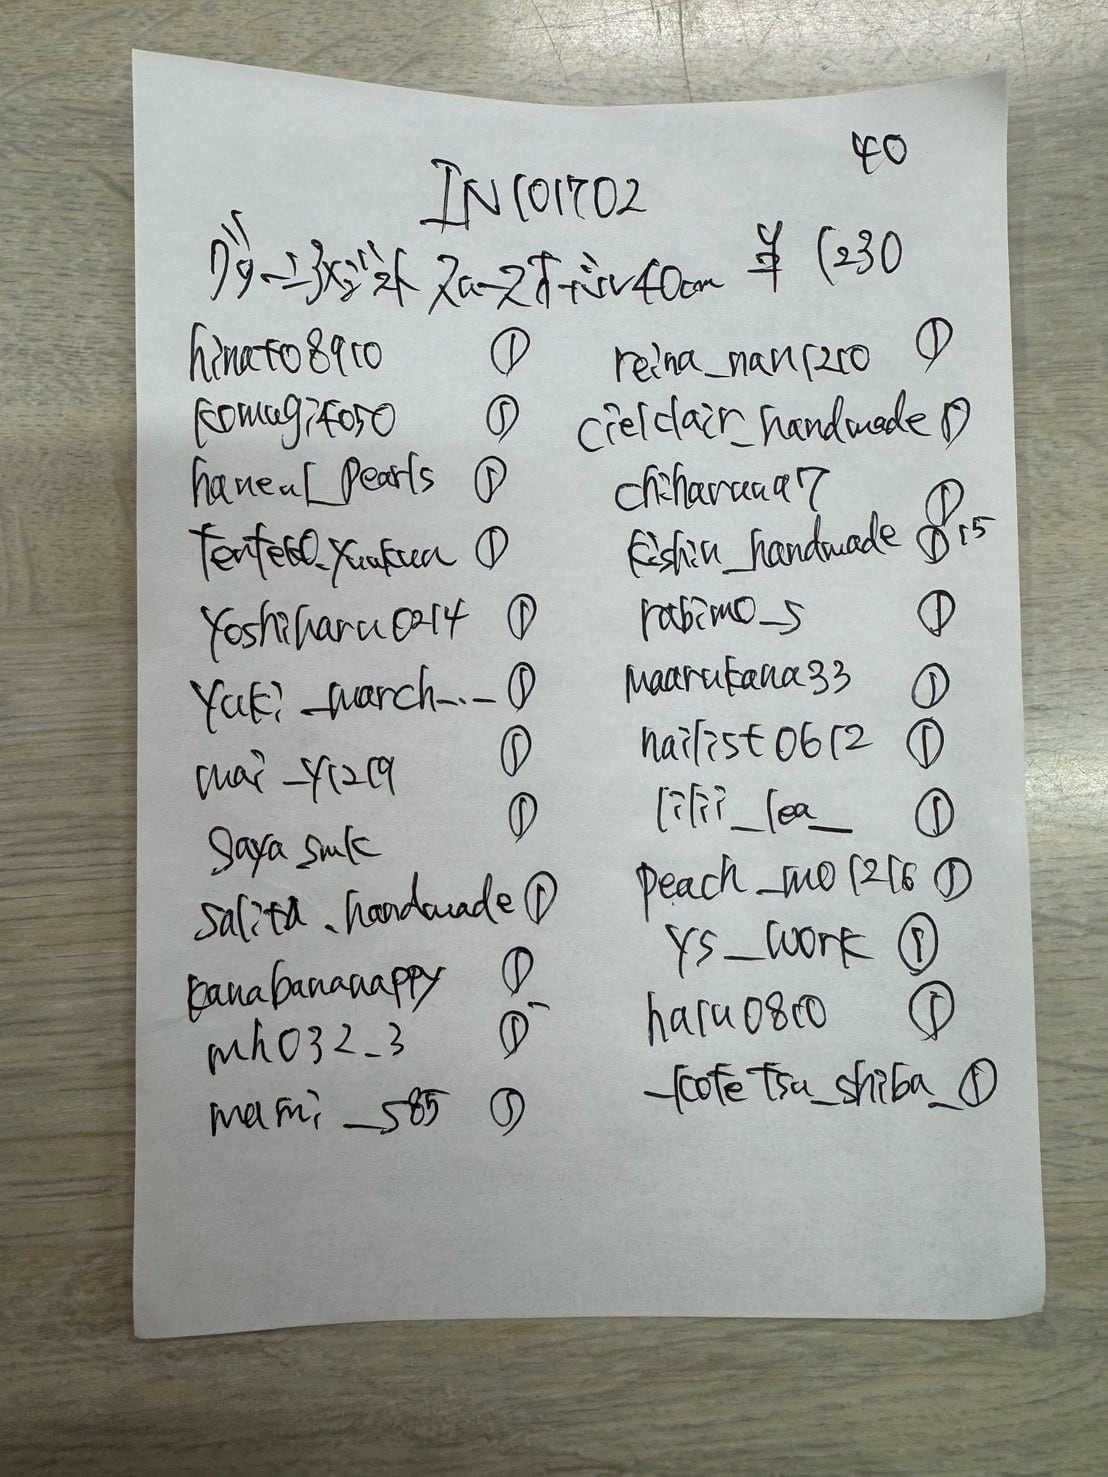 40
IN101702
40cm ¥ 1230
hinato8910 ①
komugi4050 ①
haneul_pearls ①
tenteko_yuukun ①
yoshiharu0214 ①
yuki_march_._ ①
mai_y1219 ①
saya smk ①
salita.handmade ①
kanabananappy ①
mh032_3 ①
mami_s85 ①
reina_nan1210 ①
cielclair_handmade ①
chiharuua97 ①
kishiu_handmade ① 15
rabimo_s ①
maarukana33 ①
nailist0612 ①
lilii_lea_ ①
peach_mo1216 ①
ys_work ①
haru0810 ①
_kotetsu_shiba_ ①